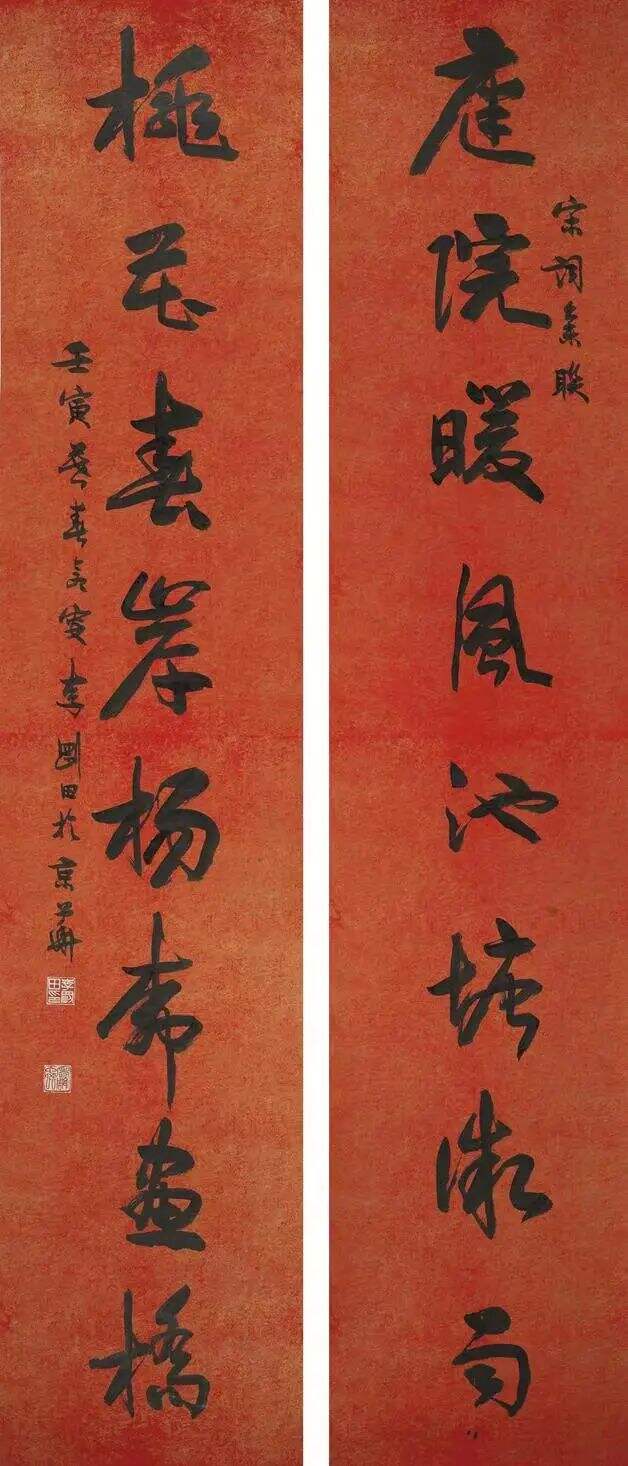 庭院暖風池塘微雨
宋詞集聯
桃花春岸楊柳畫橋
壬寅暮春李剛田於京華